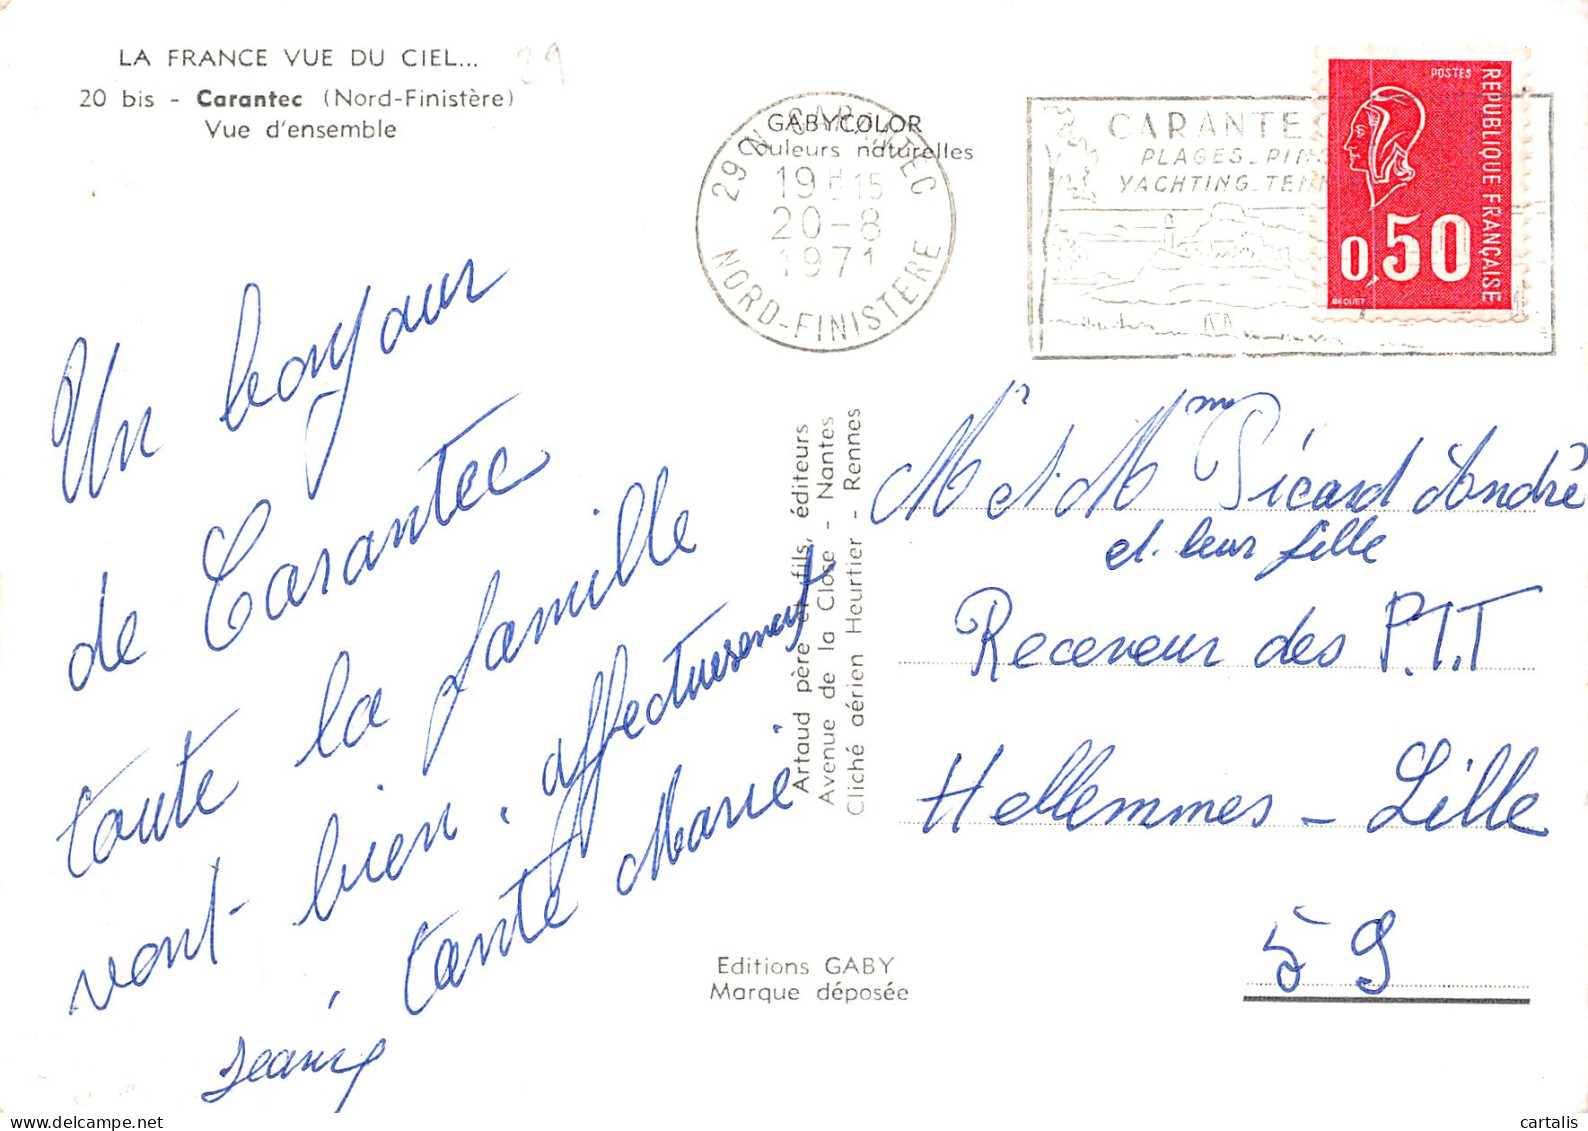 LA FRANCE VUE DU CIEL...
29
20 bis - Carantec (Nord-Finistère)
Vue d'ensemble
GABYCOLOR
Couleurs naturelles
29 N CARANTEC
19H15
20-8
1971
NORD-FINISTERE
CARANTEC
PLAGES_PINS
YACHTING_TENN
POSTES
REPUBLIQUE FRANÇAISE
0,50
BEQUET
Un bonjour
de Carantec
toute la famille
vont bien. affectueusement
tante Marie
Artaud père et fils, éditeurs
Avenue de la Close - Nantes
Cliché aérien Heurtier - Rennes
Mr et Mme Picard André
et leur fille
Receveur des P.T.T
Hellemmes - Lille
59
Editions GABY
Marque déposée
www.cartalis.com